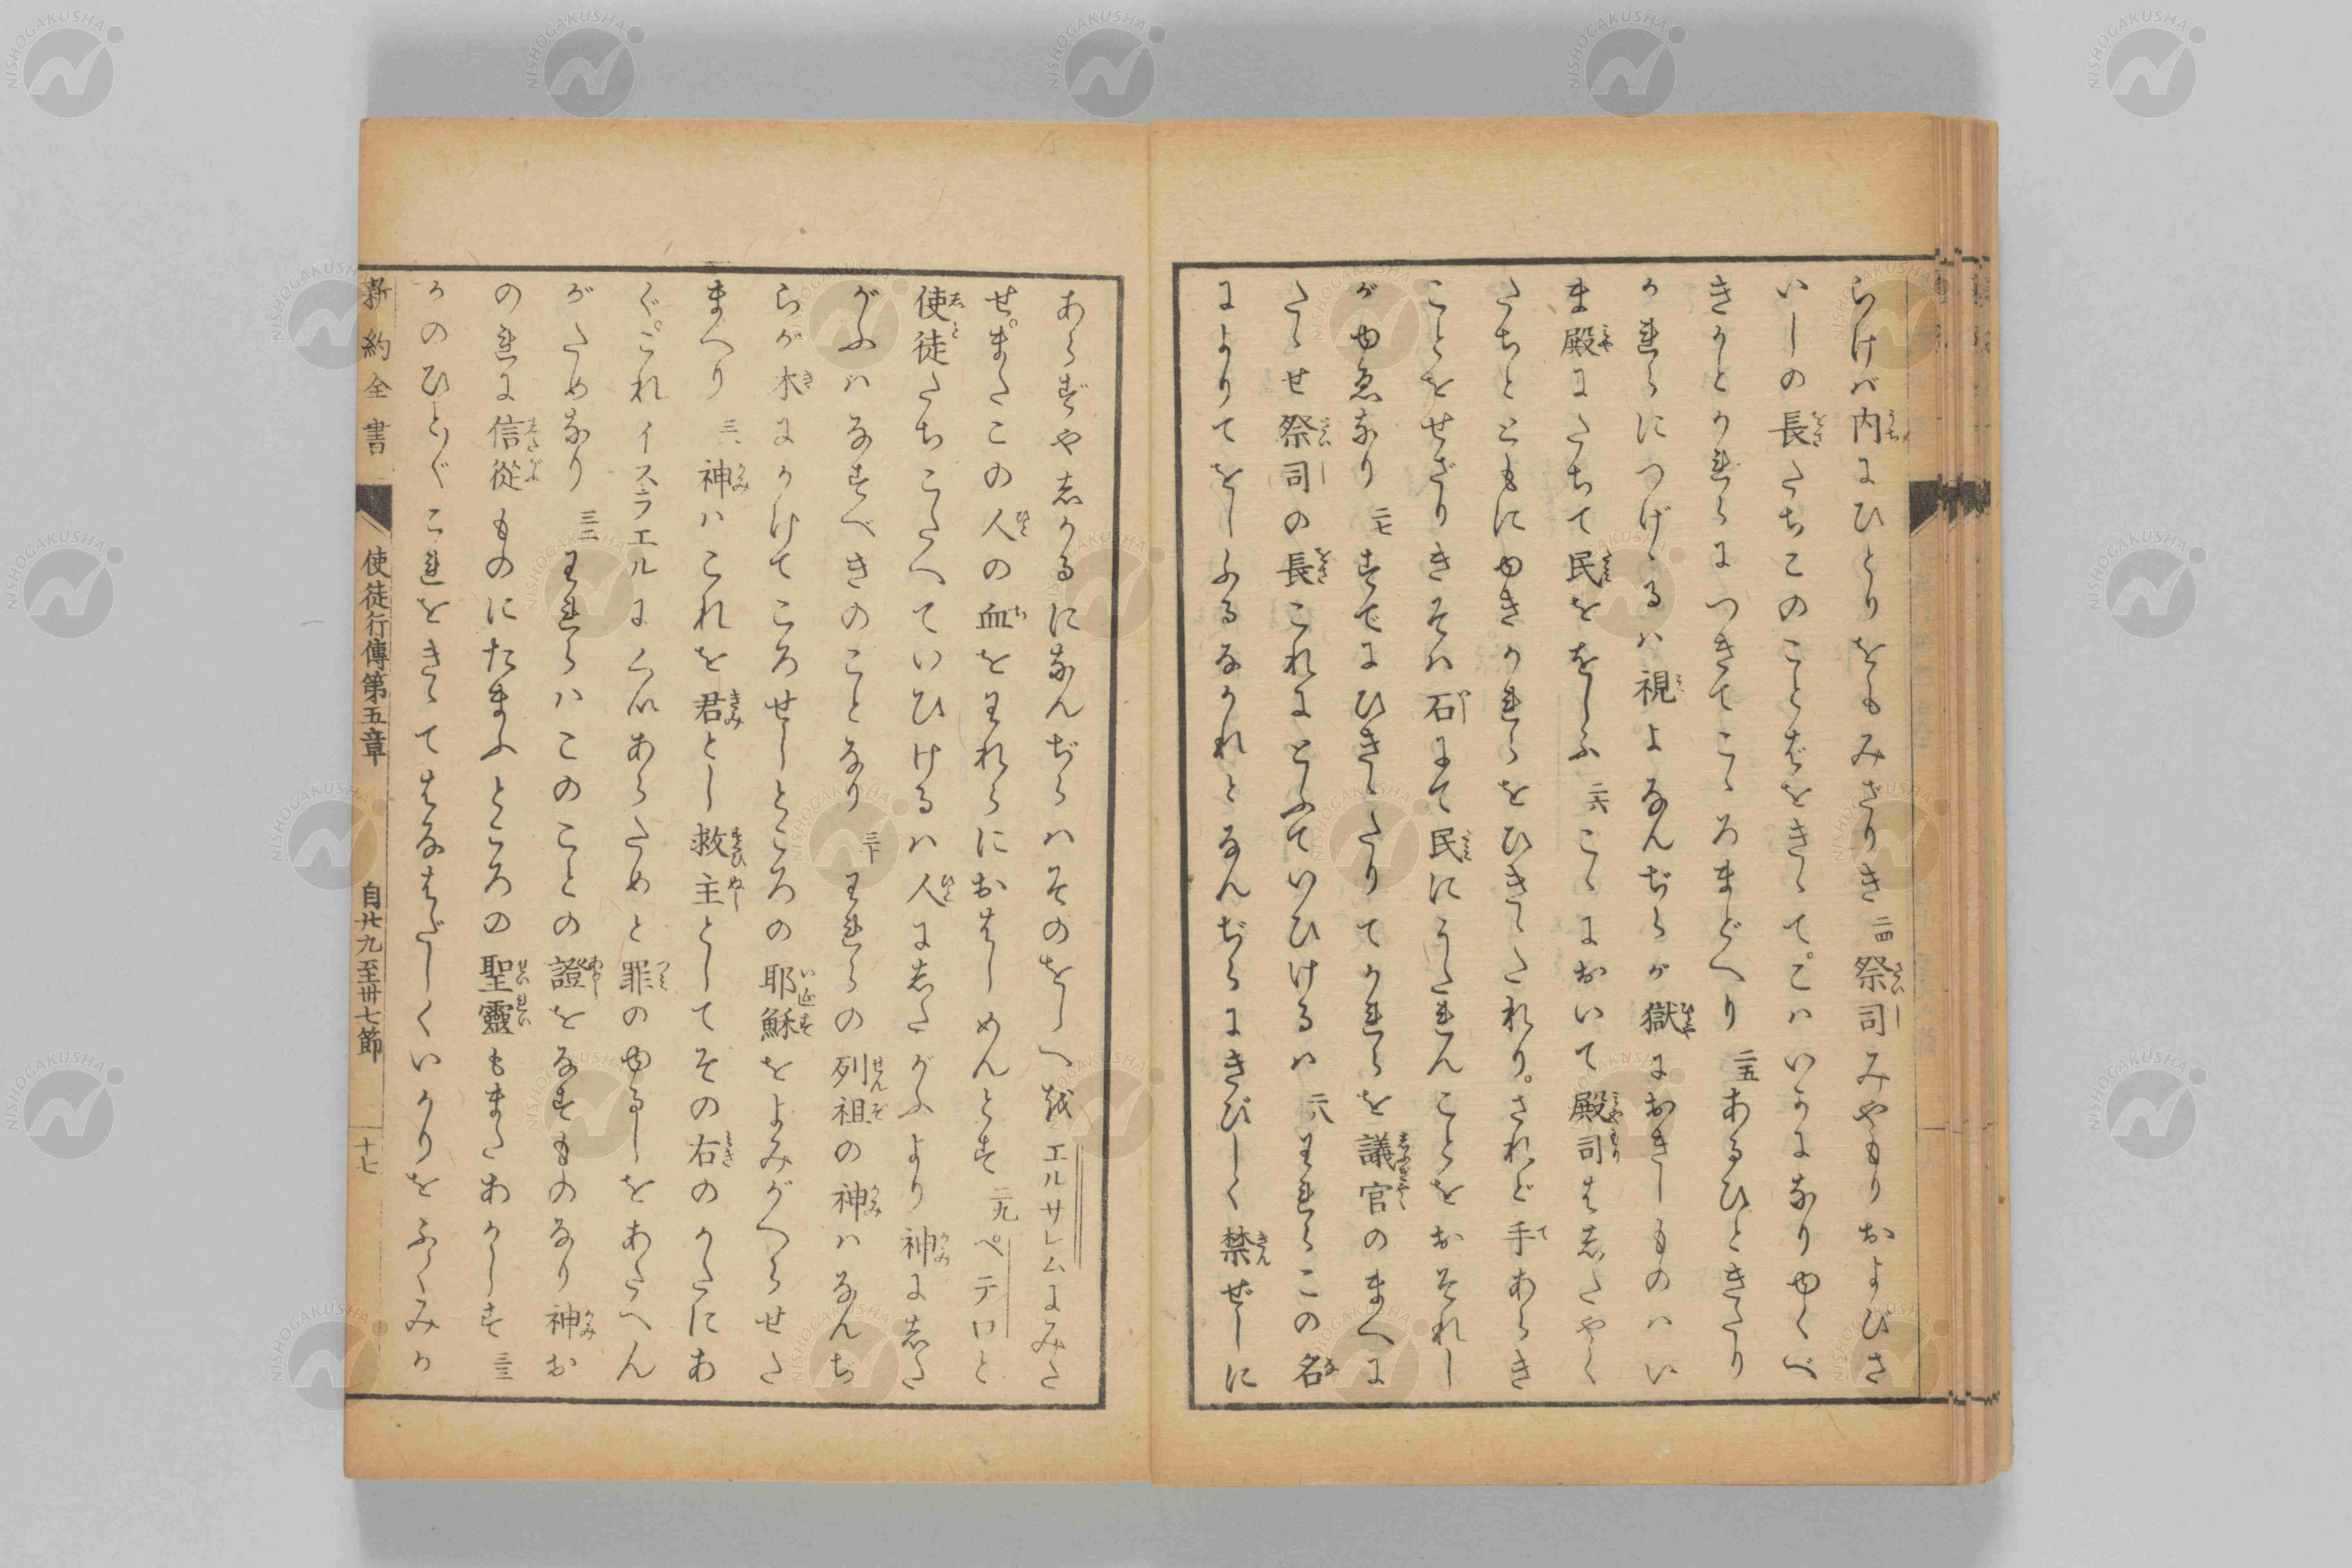 らけバ内にひとりをもみざりき 二四 祭司みやもりおよびさ
いしの長たちこのことばをきゝて。こハいかになりゆくべ
きかとかれらにつきてこゝろまどへり 二五 あるひときたり
かれらにつげゝるハ視よなんぢらが獄におきしものハい
ま殿にたちて民ををしふ 二六 こゝにおいて殿司はしたやく
たちとともにゆきかれらをひききたれり。されど手あらき
ことをせざりきそハ石にて民にうたれんことをおそれし
がゆゑなり 二七 すでにひききたりてかれらを議官のまへに
たゝせ祭司の長これにとふていひけるハ 二八 われらこの名
によりてをしふるなかれとなんぢらにきびしく禁ぜしに
あらずやしかるになんぢらハそのをしへ越エルサレムにみた
せ。またこの人の血をわれらにおはしめんとす 二九 ペテロと
使徒たちこたへていひけるハ人にしたがふより神にした
がふハなすべきのことなり 三十 われらの列祖の神ハなんぢ
らが木にかけてころせしところの耶穌をよみがへらせた
まへり 三一 神ハこれを君とし救主としてその右のかたにあ
ぐ。これイスラエルにくいあらためと罪のゆるしをあたへん
がためなり 三二 われらハこのことの證をなすものなり神お
のれに信從ものにたまふところの聖靈もまたあかしす 三三
かのひとゞこれをきゝてはなはだしくいかりをふくみか
新約全書
使徒行傳第五章
自廿九至卅七節
十七